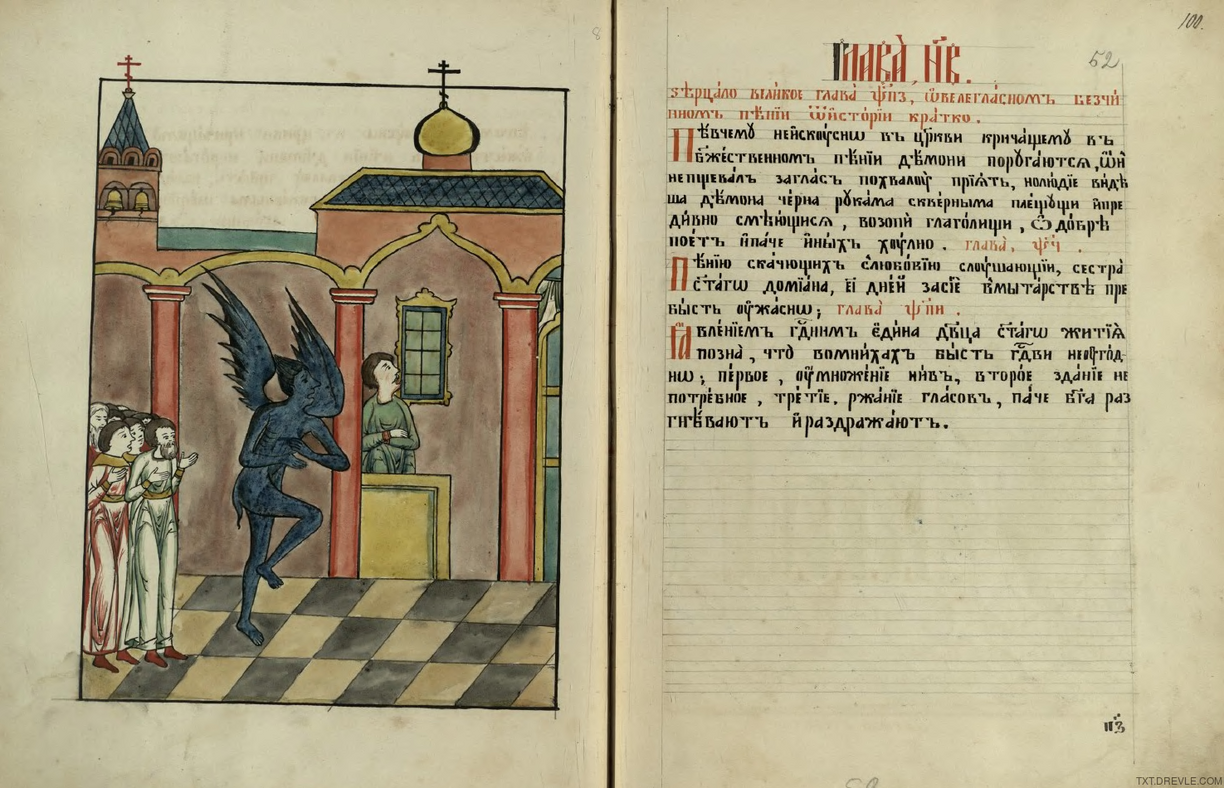 100.
52
Глава̀, н҃в.
Ѕѣрцало великое глава ѱ҃пз, ѡ велегласномъ безчи
нномъ пѣнїи ѿ исторїи кратко.
Пѣвчемꙋ неискꙋснѡ въ цр҃кви кричащемꙋ въ
бжественномъ пѣнїи дѣмони порꙋгаются, ѡ҆н
непщевалъ загласъ похвалꙋ прїѧть, но людїе видѣ
ша дѣмона черна рꙋкама скверныма плещꙋщи и пре
дивно смѣющися, возопи глаголющи, ѽ добрѣ
поетъ ипаче иныхъ хꙋлно. глава, ѱ҃ч .
Пѣнїю скачющихъ слюбовїю слꙋшающїи, сестра
ст҃агѡ домїана, еі дней засїе вмытарствѣ пре
бысть ꙋжаснѡ; глава ѱ҃пи .
Ꙗвленїемъ гдним един дв҃ца ст҃агѡ житїѧ
позна, что вомнихахъ бысть гдви неꙋгод
нѡ; первое, ꙋмноженїе нивъ, второе зданїе не
потребное, третїе, ржанїе гласовъ, паче бг҃а раз
гнѣваютъ и раздражаютъ.
п҃з
TXT.DREVLE.COM